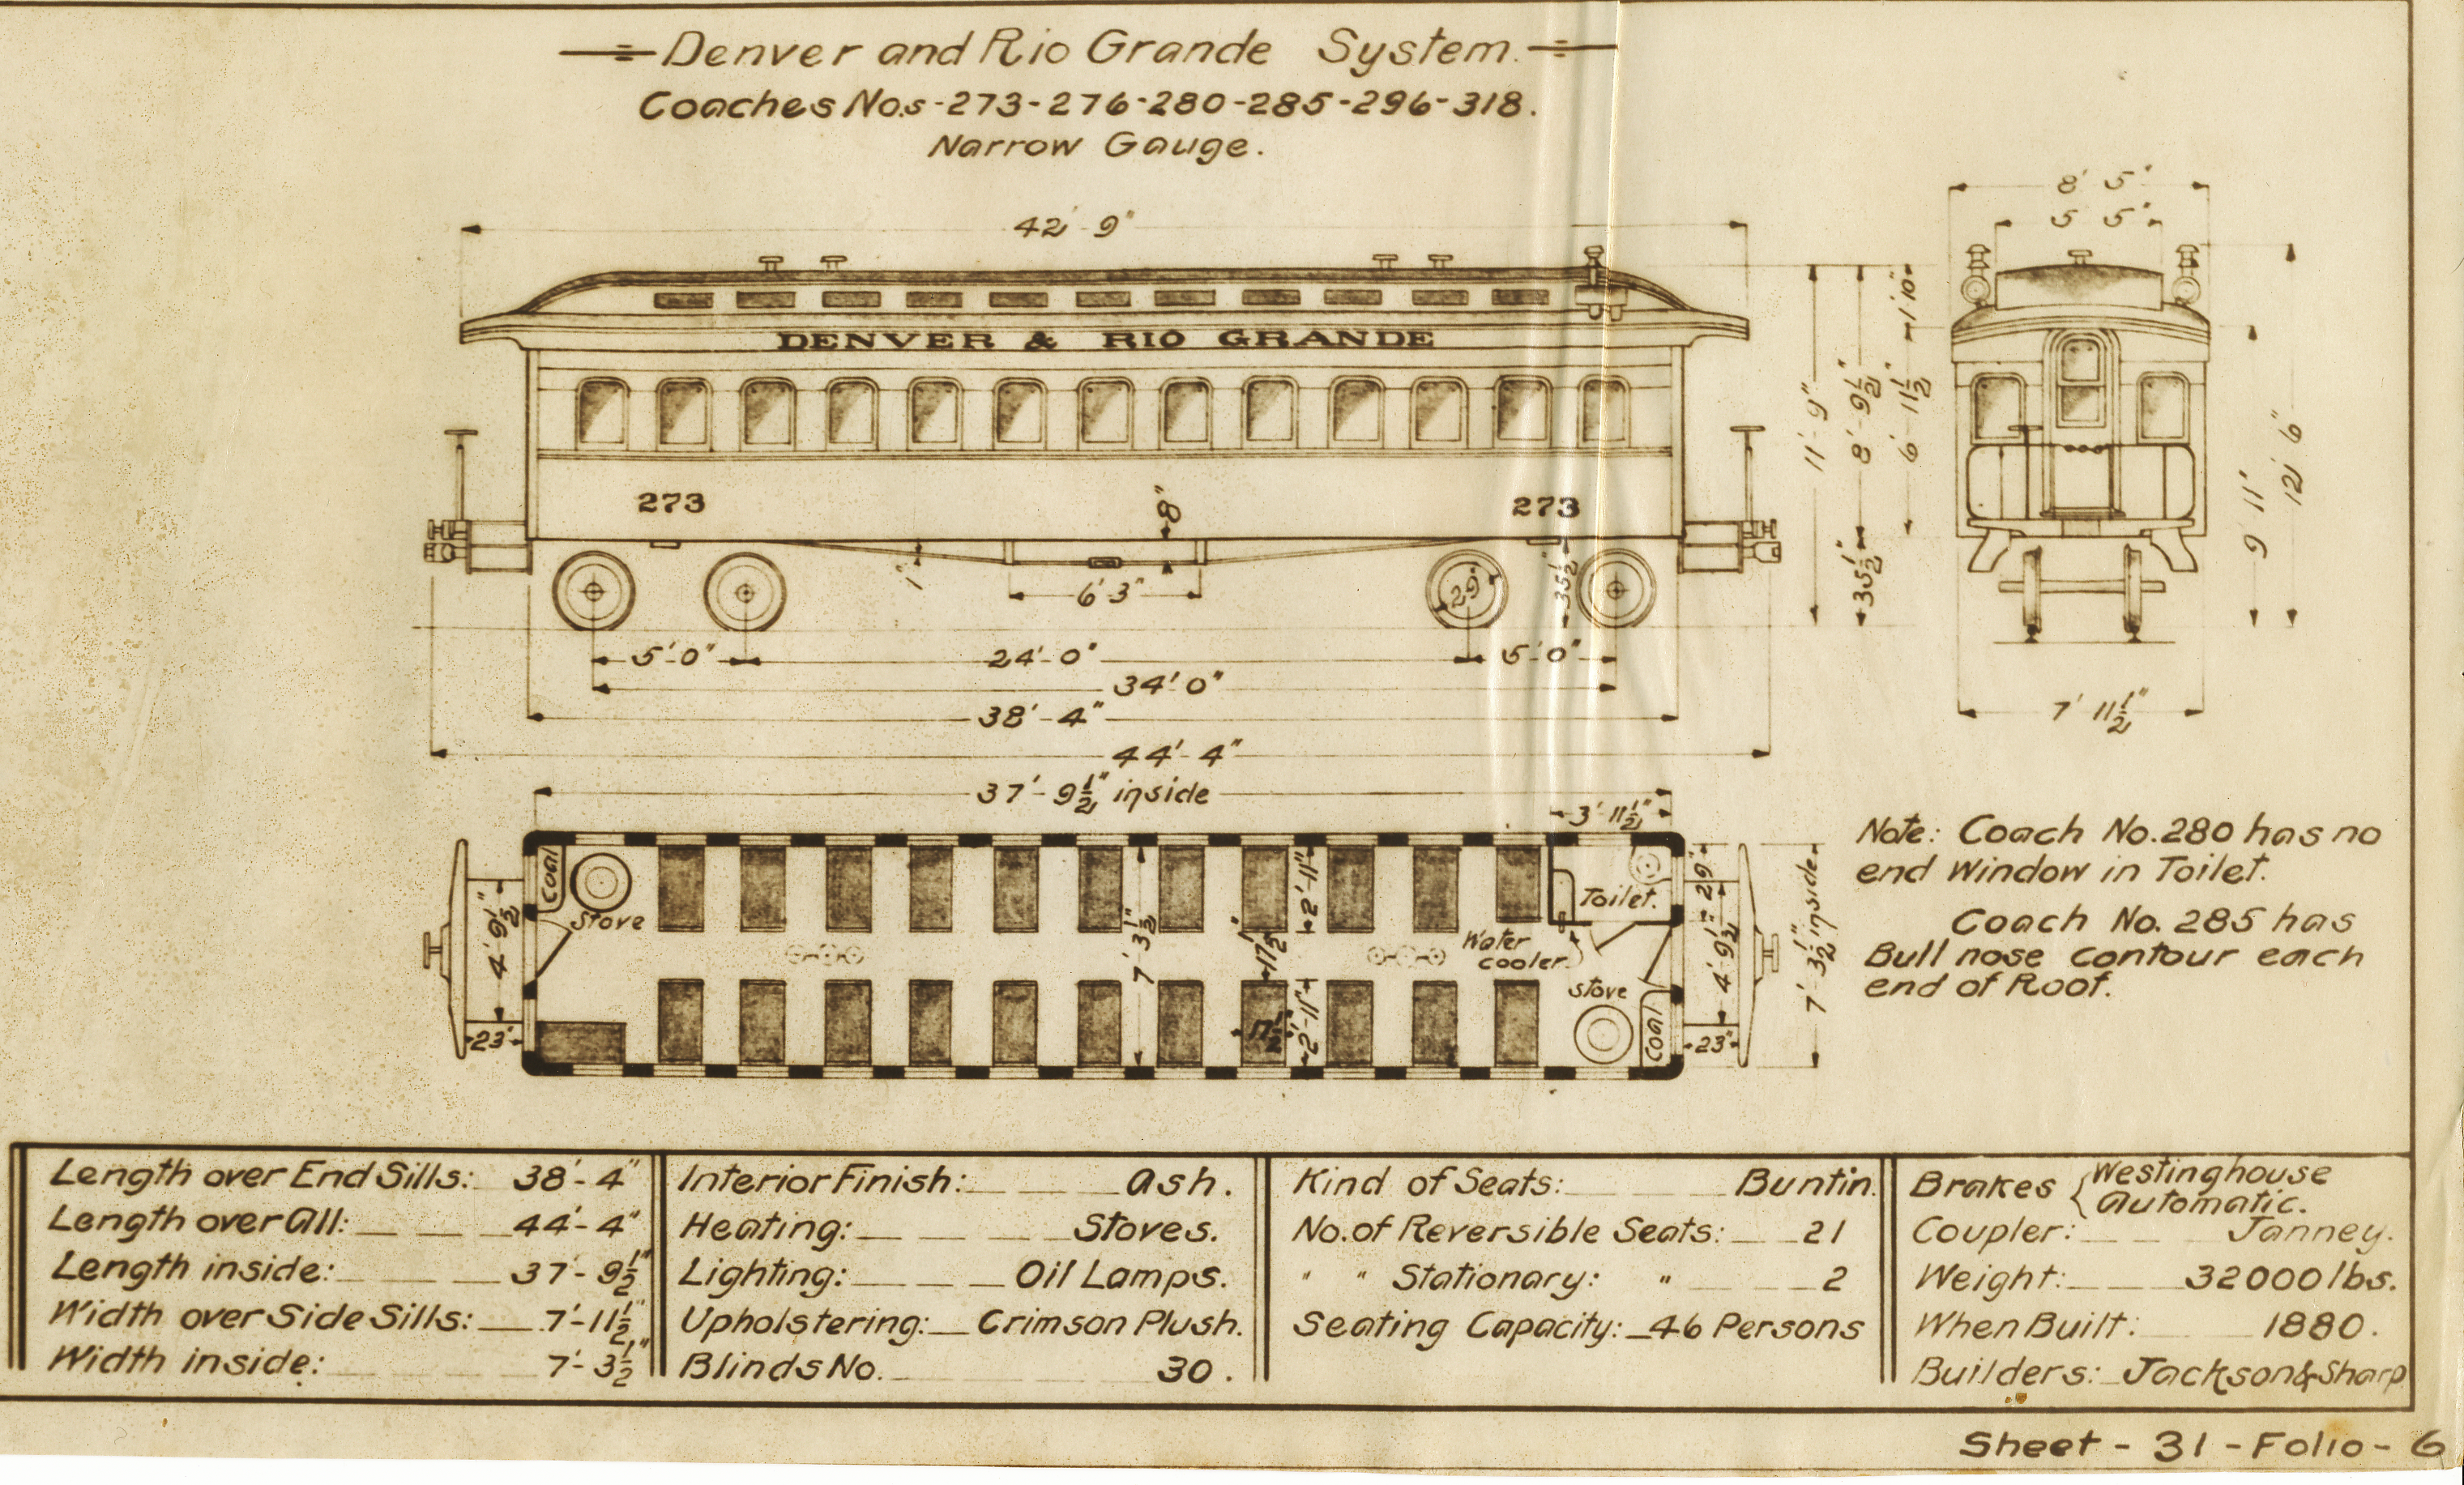 Denver and Rio Grande System.
Coaches Nos-273-276-280-285-296-318.
Narrow Gauge.
42' 9"
8' 5"
5 5"
DENVER & RIO GRANDE
11'-9"
8'-9½"
6'-11½"
1'10"
35½"
9' 11"
12' 6"
273
273
8"
1"
6'3"
29"
35½"
5'-0"
24'-0"
5'-0"
34'-0"
38'-4"
7' 11½"
44'-4"
37'-9½" inside
3'-11½"
Coal
Stove
4'-9½"
23"
7'-3½"
17½"
2'-11"
17½"
2'-11"
Water
cooler
Toilet.
Stove
Coal
29"
4'-9½"
23"
7'-3½" inside
Note: Coach No.280 has no
end Window in Toilet.
Coach No. 285 has
Bull nose contour each
end of Roof.
Length over End Sills: 38'-4"
Length over All: 44'-4"
Length inside: 37'-9½"
Width over Side Sills: 7'-11½"
Width inside: 7'-3½"
Interior Finish: Ash.
Heating: Stoves.
Lighting: Oil Lamps.
Upholstering: Crimson Plush.
Blinds No. 30.
Kind of Seats: Buntin.
No. of Reversible Seats: 21
" " Stationary: " 2
Seating Capacity: 46 Persons
Brakes { Westinghouse
Automatic.
Coupler: Janney.
Weight: 32000 lbs.
When Built: 1880.
Builders: Jackson & Sharp
Sheet - 31 - Folio - 6